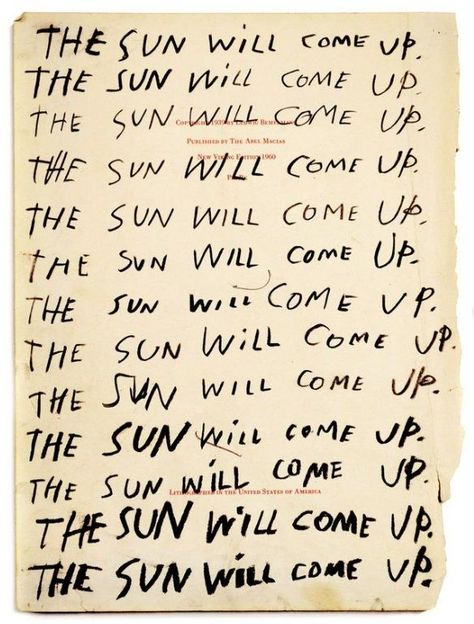 THE SUN WiLL COME UP.
THE SUN WiLL COME UP.
THE SUN WILL COME UP.
COPYRIGHT 1939 BY LUDWIG
PUBLISHED BY THE ABEL MACIAS
NEW VIKING EDITION 1960
THE SUN WILL COME UP.
THE SUN WILL COME UP.
THE SUN WILL COME UP.
THE SUN WiLL COME UP.
THE SUN WiLL COME UP.
THE SUN WILL COME UP.
THE SUN WiLL COME UP.
THE SUN WiLL COME UP.
LITHOGRAPHED IN THE UNITED STATES OF AMERICA
THE SUN WiLL COME UP.
THE SUN WiLL COME UP.